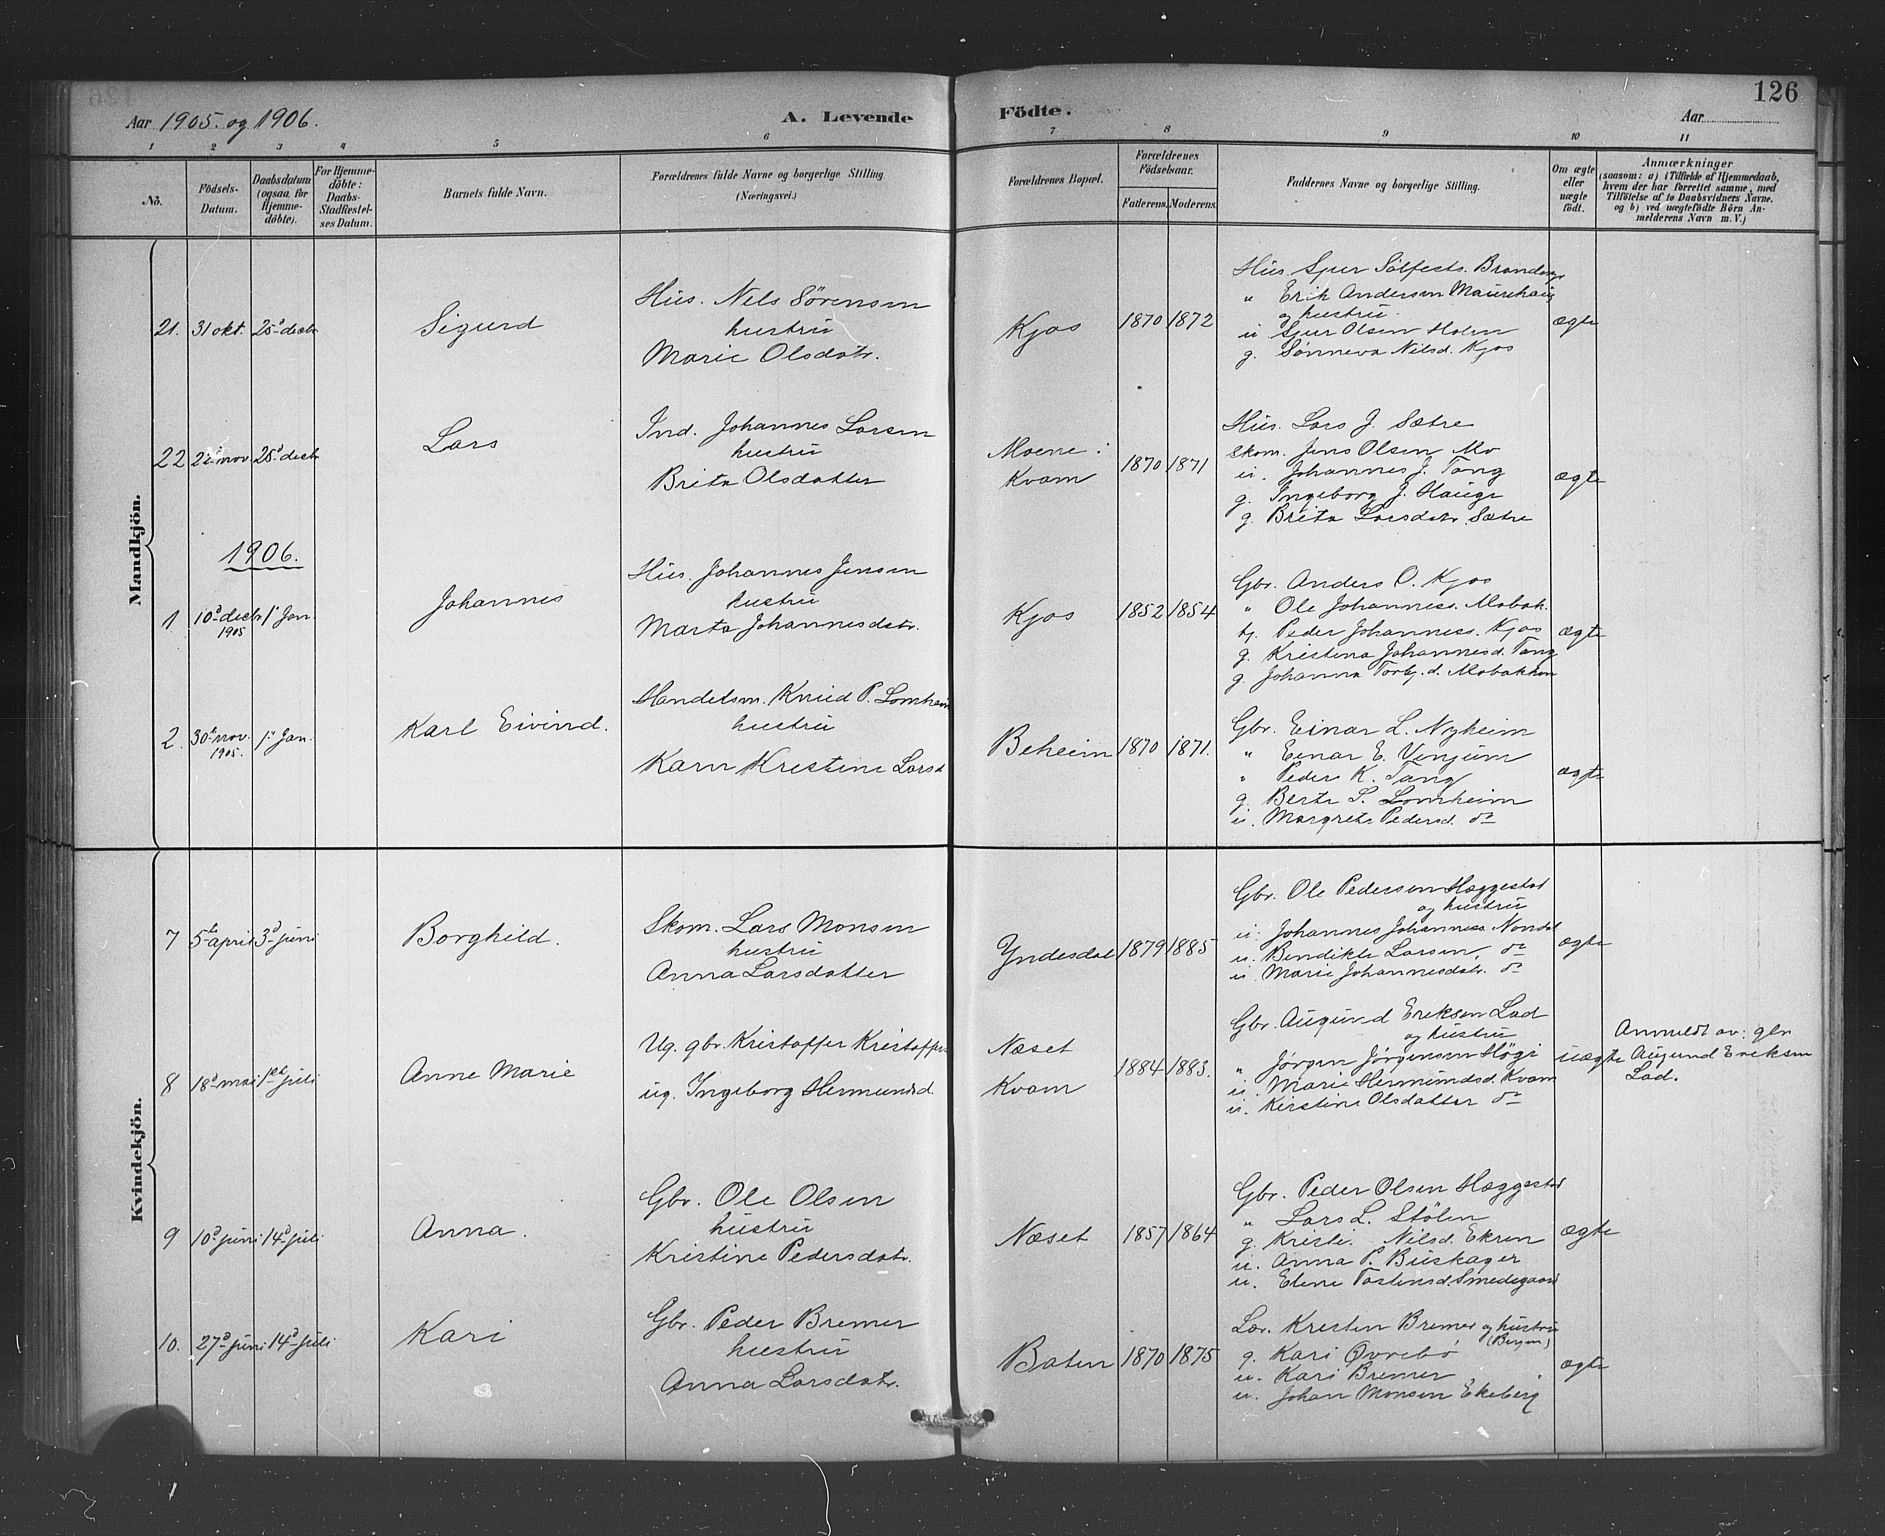 126
Aar 1905. og 1906.
A. Levende Födte.
Aar
1 2 3 4 5 6 7 8 9 10 11
No.
Födsels-Datum.
Daabsdatum (ogsaa for Hjemmedöbte).
For Hjemmedöbte: Daabs-Stadfestelses Datum.
Barnets fulde Navn.
Forældrenes fulde Navne og borgerlige Stilling (Næringsvei.)
Forældrenes Bopæl.
Forældrenes Födselsaar.
Faderens. Moderens.
Faddernes Navne og borgerlige Stilling.
Om ægte eller uægte födt.
Anmærkninger
(saasom: a) i Tilfælde af Hjemmedaab, hvem der har forrettet samme, med Tilföielse af to Daabsvidners Navne. og b) ved uægtefödte Börn Anmelderens Navn m. V.)
Mandkjön.
21. 31 okt. 25d decbr
Sigurd
Hus. Nels Sörensen
hustru
Marie Olsdatr.
Kjos
1870 1872
Hus. Sjur Sölfests.
" Erik Andersen Maurhaug
og hustru.
u Sjur Olsen Holm
g. Sønneva Nilsd. Kjos
ægte
22 25d decbr
Lars
Ind. Johannes Larsen
hustru
Brita Olsdatter
Moene i
Kvam
1870 1871
Hus. Lars J. Sætre
Skom. Jens Olsen Mo
u. Johannes J. Tang
g. Ingeborg J. Hauge
g. Brita Larsdatr. Sætre
ægte
1906.
1 10d decbr 1905 1ste Jan
Johannes
Hus. Johannes Jensen
hustru
Marta Johannesdatr.
Kjos
1852 1854
Gbr. Anders O. Kjos
" Ole Johanness. Mobak.
tj. Peder Johanness. Kjos
g. Kristina Johannesd. Tang
g. Johanna Torbj.d. Mobakken
ægte
2. 30te nov. 1905. 1ste Jan.
Karl Eivind.
Handelsm. Knud P. Lomheim
hustru
Karn Kristine Larsd
Beheim
1870 1871.
Gbr. Einar L. Nyheim
" Einar E. Venjum
" Peder K. Tang
g. Berte S. Lomheim
u. Margrete Pedersd. do
ægte
Kvindekjön.
7 5te april 3d juni
Borghild.
Skom. Lars Monsen
hustru
Anna Larsdatter
Yndesdal
1879 1885
Gbr. Ole Pedersen Hæggestad
og hustru
u. Johannes Johanness. Nondal
u. Bendikte Larsen, do
u. Marie Johannesdatr. do
ægte
8 18d mai 1ste juli
Anne Marie
Ug. gbr. Kristoffer Kristoffers
ug. Ingeborg Hermundsd.
Næset
Kvam
1884 1883.
Gbr. Augund Eriksen Lad
og hustru
" Jörgen Jörgensen Högi
u. Marie Hermundsd. Kvam
u. Kirstine Olsdatter do
uægte
Anmeldt av: gbr
Augund Eriksen
Lad.
9 10d juni 14d juli
Anna.
Gbr. Ole Olsen
hustru
Kristine Pedersdatr.
Næset
1857 1864
Gbr. Peder Olsen Hæggestad
" Lars L. Stölen
g. Kristi. Nilsd. Ekren
u. Anna P. Buskager
u. Eline Tostensd. Smedegaard
ægte
10. 27d juni 14d juli
Kari
Gbr. Peder Bremer
hustru
Anna Larsdatr.
Boten
1870 1875
Lær. Kristen Bremer og hustru
(Bergen)
g. Kari Øvrebö
u. Kari Bremer
u. Johan Monsen Ekeberg
ægte